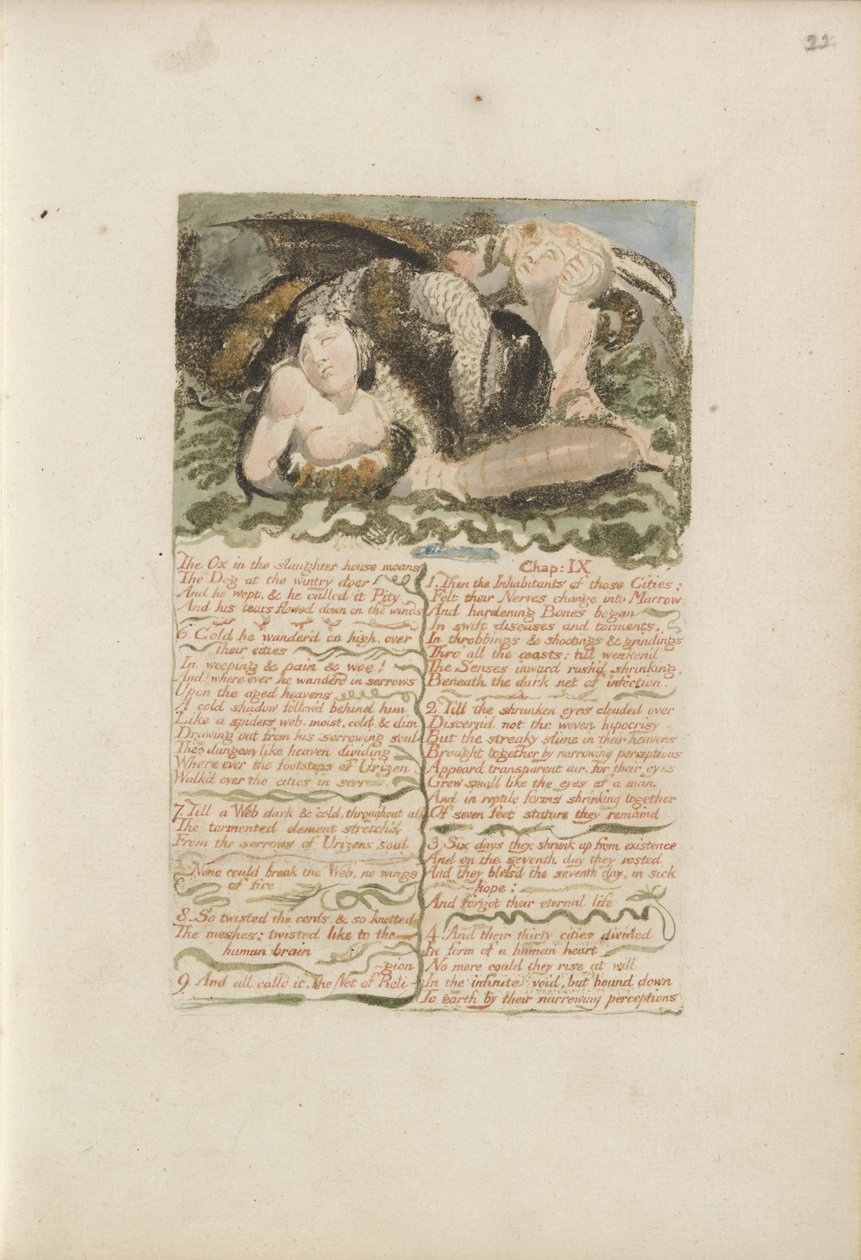 22
The Ox in the slaughter house moans
The Dog at the wintry door
And he wept, & he called it Pity
And his tears flowed down on the winds
6. Cold he wander'd on high, over
their cities
In weeping & pain & woe!
And where-ever he wanderd in sorrows
Upon the aged heavens
A cold shadow follow'd behind him
Like a spiders web, moist, cold, & dim
Drawing out from his sorrowing soul
The dungeon-like heaven dividing
Where ever the footsteps of Urizen
Walk'd over the cities in sorrow.
7. Till a Web dark & cold, throughout all
The tormented element stretch'd
From the sorrows of Urizens soul
None could break the Web, no wings
of fire
8. So twisted the cords, & so knotted
The meshes: twisted like to the
human brain
-gion
9 And all calld it, The Net of Reli-
Chap: IX
1. Then the Inhabitants of those Cities:
Felt their Nerves change into Marrow
And hardening Bones began
In swift diseases and torments,
In throbbings & shootings & grindings
Thro' all the coasts: till weaken'd
The Senses inward rush'd shrinking,
Beneath the dark net of infection.
2. Till the shrunken eyes clouded over
Discernd not the woven hipocrisy
But the streaky slime in their heavens
Brought together by narrowing perceptions
Appeard transparent air; for their eyes
Grew small like the eyes of a man
And in reptile forms shrinking together
Of seven feet stature they remaind
3. Six days they shrunk up from existence
And on the seventh day they rested
And they bless'd the seventh day, in sick
hope:
And forgot their eternal life
4. And their thirty cities divided
In form of a human heart
No more could they rise at will
In the infinite void, but bound down
To earth by their narrowing perceptions